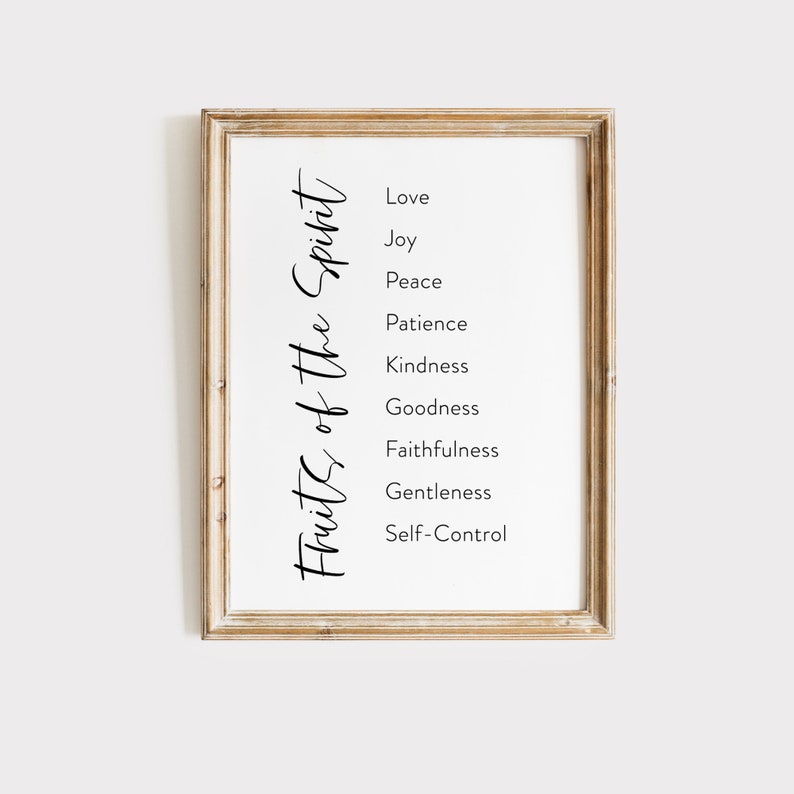 Fruits of the Spirit
Love
Joy
Peace
Patience
Kindness
Goodness
Faithfulness
Gentleness
Self-Control